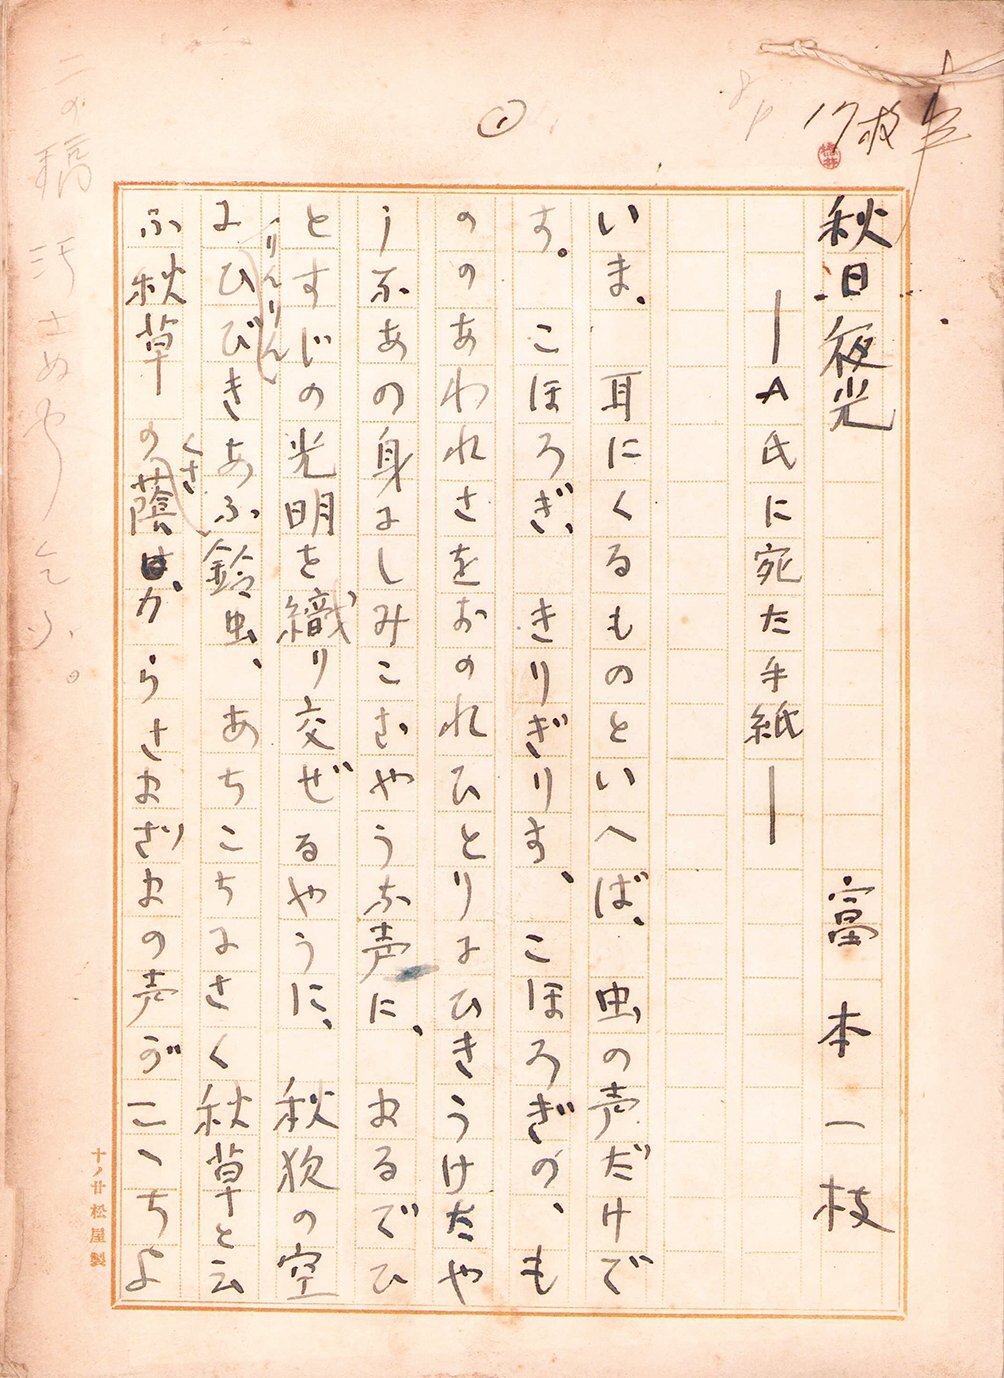 17枚
①
秋日夜光
富本一枝
―A氏に宛た手紙―
いま、耳にくるものといへば、虫の声だけで
す。こほろぎ、きりぎりす、こほろぎの、も
ののあわれさをおのれひとりにひきうけたや
うなあの身にしみこむやうな声に、まるでひ
とすじの光明を織り交ぜるやうに、秋夜の空
りんりん
にひびきあふ鈴虫、あちこちにさく秋草と云
くさ
ふ秋草の蔭からさまざまの声がこゝちよ
この稿汚さぬやう
十ノ廿松屋製